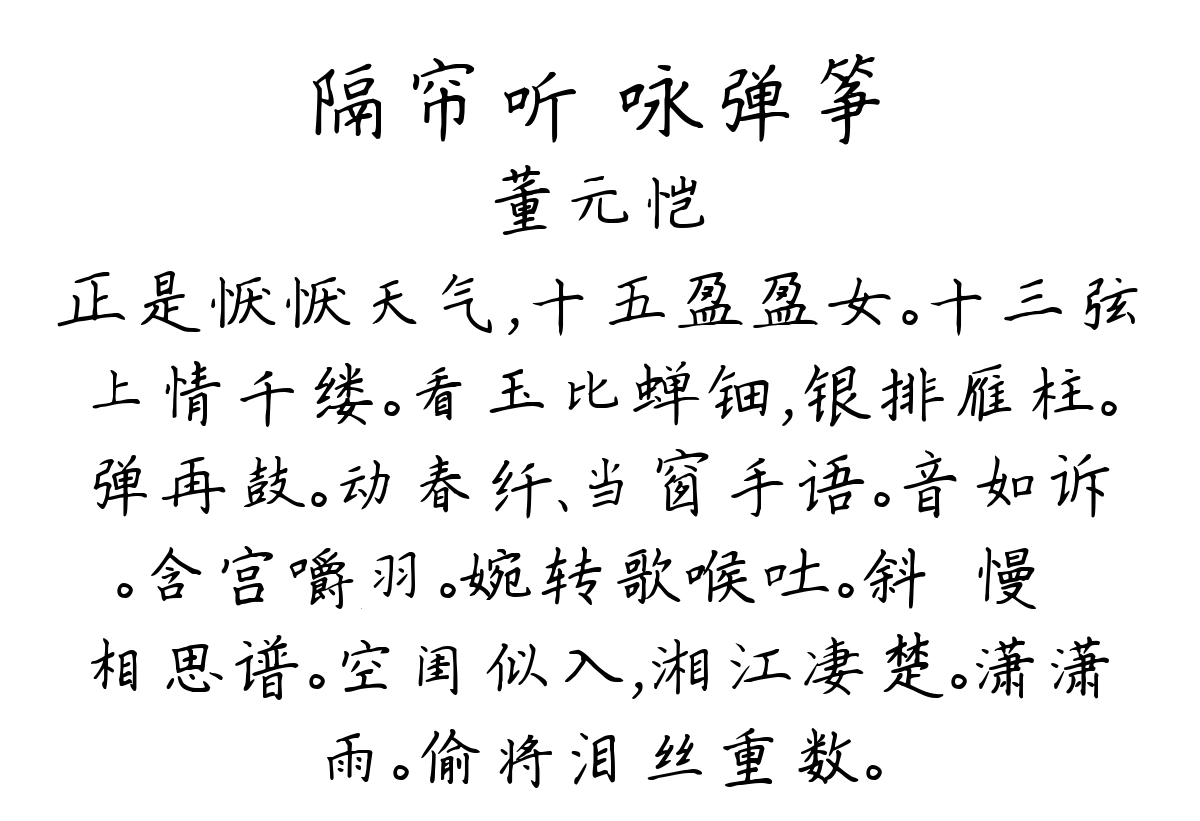 隔帘听 咏弹筝
董元恺
正是恹恹天气,十五盈盈女。十三弦
上情千缕。看玉比蝉钿,银排雁柱。
弹再鼓。动春纤、当窗手语。音如诉
。含宫嚼羽。婉转歌喉吐。斜 慢
相思谱。空闺似入,湘江凄楚。潇潇
雨。偷将泪丝重数。